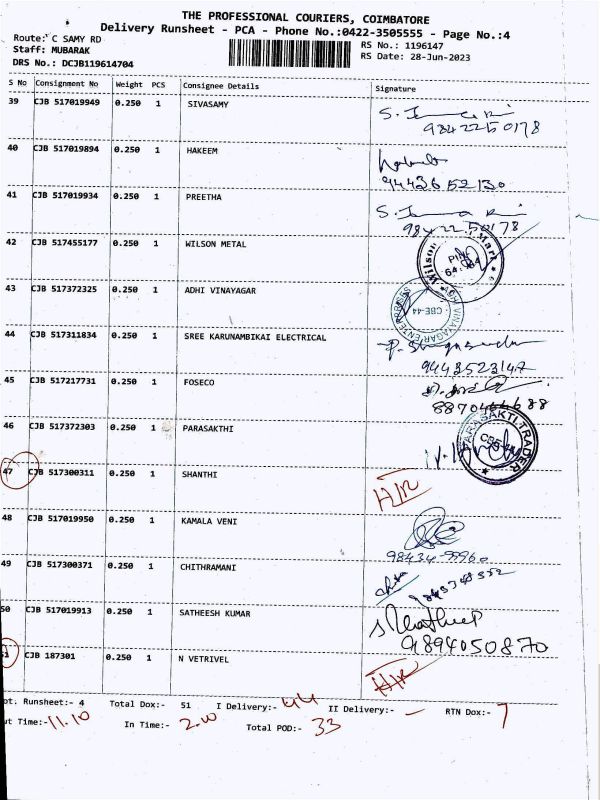 THE PROFESSIONAL COURIERS, COIMBATORE
Delivery Runsheet - PCA - Phone No.:0422-3505555 - Page No.:4
Route: C SAMY RD
RS No.: 1196147
Staff: MUBARAK
RS Date: 28-Jun-2023
DRS No.: DCJB119614704
S No Consignment No Weight PCS Consignee Details Signature
39 CJB 517019949 0.250 1 SIVASAMY
9842250178
40 CJB 517019894 0.250 1 HAKEEM
9443652130
41 CJB 517019934 0.250 1 PREETHA
9842250178
42 CJB 517455177 0.250 1 WILSON METAL
Wilson Mart
43 CJB 517372325 0.250 1 ADHI VINAYAGAR
ADHI VINAYAGAR ENTERPRISES
CBE-44
44 CJB 517311834 0.250 1 SREE KARUNAMBIKAI ELECTRICAL
9443523147
45 CJB 517217731 0.250 1 FOSECO
46 CJB 517372303 0.250 1 PARASAKTHI
PARASAKTI TRADER
47 CJB 517300311 0.250 1 SHANTHI
48 CJB 517019950 0.250 1 KAMALA VENI
98434-99960
49 CJB 517300371 0.250 1 CHITHRAMANI
50 CJB 517019913 0.250 1 SATHEESH KUMAR
9894050870
51 CJB 187301 0.250 1 N VETRIVEL
ot. Runsheet:- 4 Total Dox:- 51 I Delivery:- 44 II Delivery:- - RTN Dox:- 7
ut Time:- 11.10 In Time:- 2.00 Total POD:- 33